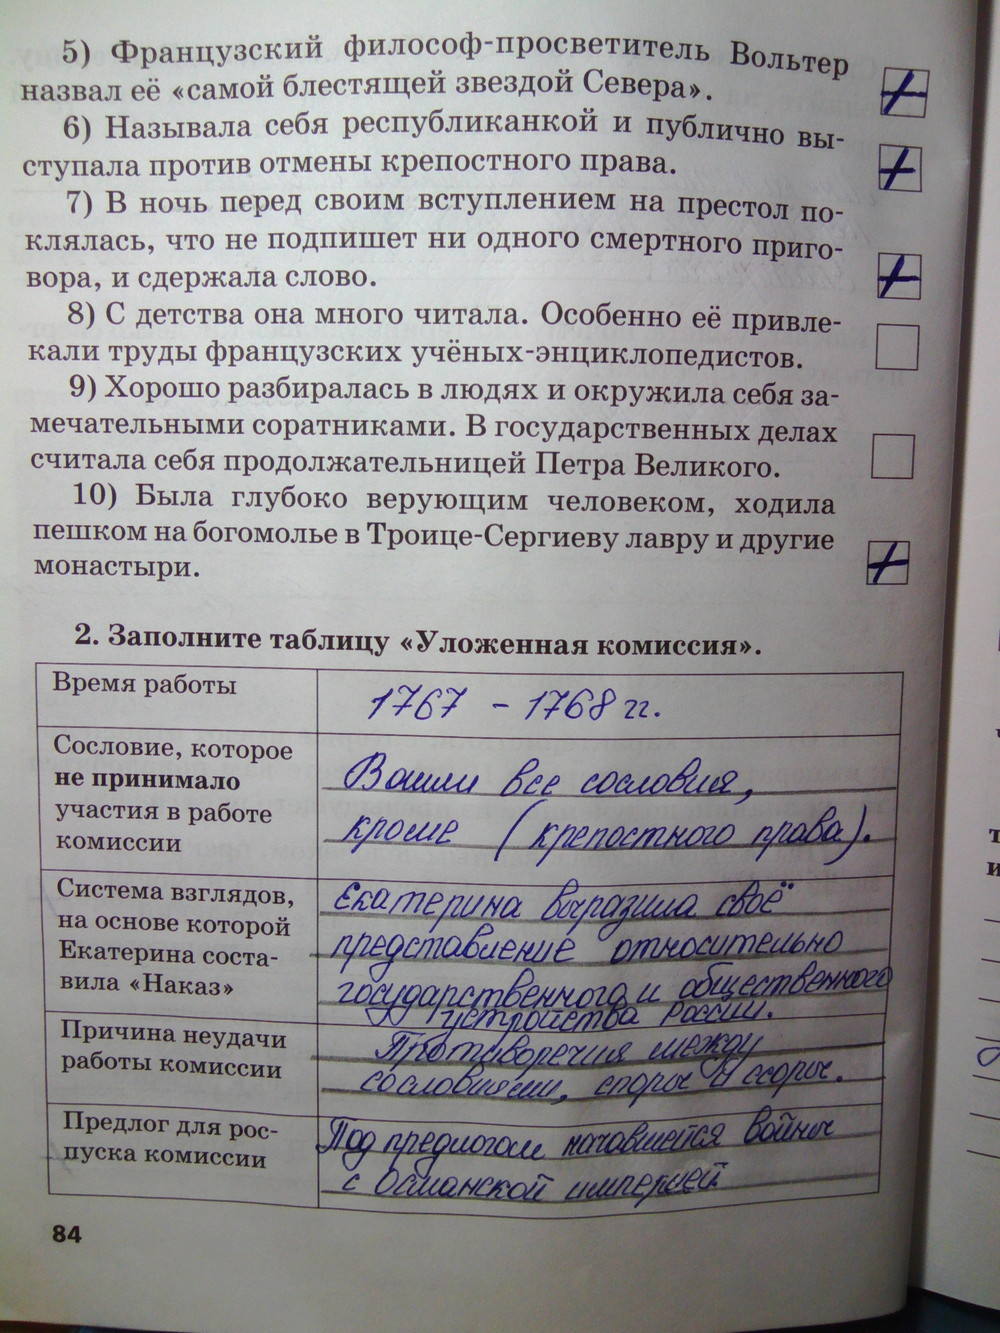 5) Французский философ-просветитель Вольтер
назвал её «самой блестящей звездой Севера».
6) Называла себя республиканкой и публично вы-
ступала против отмены крепостного права.
7) В ночь перед своим вступлением на престол по-
клялась, что не подпишет ни одного смертного приго-
вора, и сдержала слово.
8) С детства она много читала. Особенно её привле-
кали труды французских учёных-энциклопедистов.
9) Хорошо разбиралась в людях и окружила себя за-
мечательными соратниками. В государственных делах
считала себя продолжательницей Петра Великого.
10) Была глубоко верующим человеком, ходила
пешком на богомолье в Троице-Сергиеву лавру и другие
монастыри.
2. Заполните таблицу «Уложенная комиссия».
Время работы
1767 - 1768 гг.
Сословие, которое
не принимало
участия в работе
комиссии
Вошли все сословия,
кроме (крепостного права).
Система взглядов,
на основе которой
Екатерина соста-
вила «Наказ»
Екатерина выразила своё
представление относительно
государственного и общественного
устройства России.
Причина неудачи
работы комиссии
Противоречия между
сословиями, споры и ссоры.
Предлог для рос-
пуска комиссии
Под предлогом начавшейся войны
с Османской империей
84